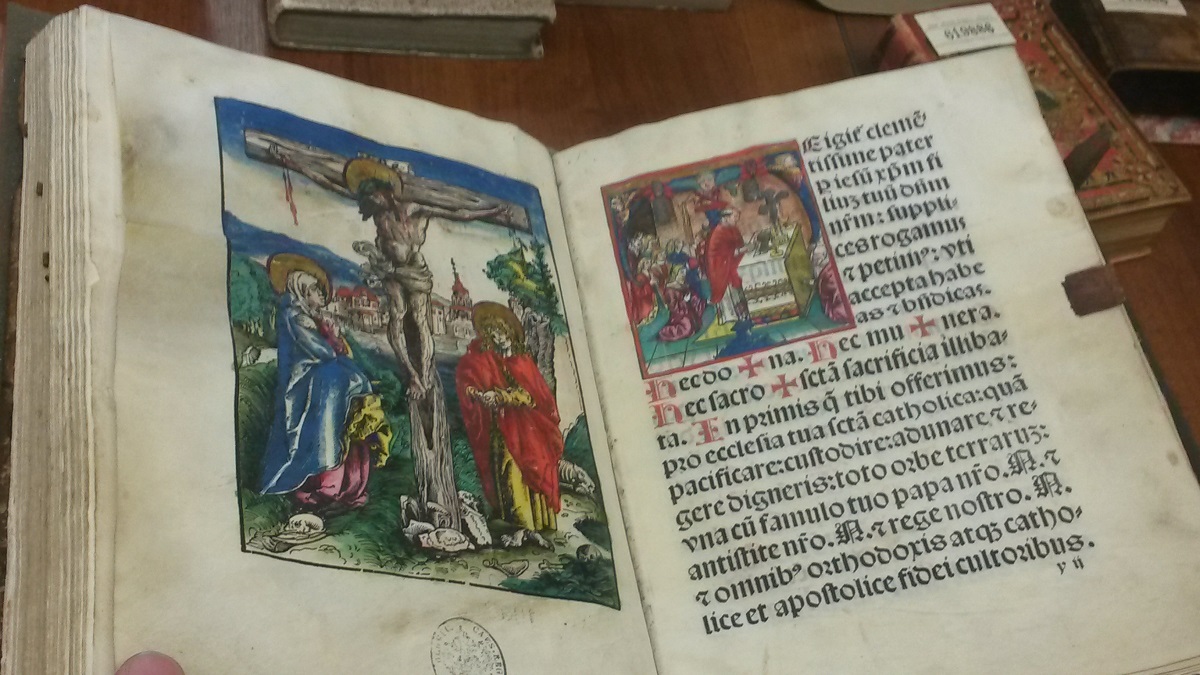 E igit᷑ clemẽ
tissime pater
p iesũ xp̃m fi
liuz tuũ dñm
nr̃m: suppli-
ces rogamus
⁊ petimꝰ: vti
accepta habe
as ⁊ bñdicas.
Hec do ✠ na. Hec mu ✠ nera.
Hec sacro ✠ sctã sacrificia illiba-
ta. In primis q̃ tibi offerimus:
pro ecclesia tua sctã catholica: quã
pacificare: custodire: adunare, ⁊ re-
gere digneris: toto orbe terraruz:
vna cũ famulo tuo papa nr̃o. N. ⁊
antistite nr̃o. N. ⁊ rege nostro. N.
⁊ omnibꝰ orthodoxis atqꝫ catho-
lice et apostolice fidei cultoribus.
y ij
619886